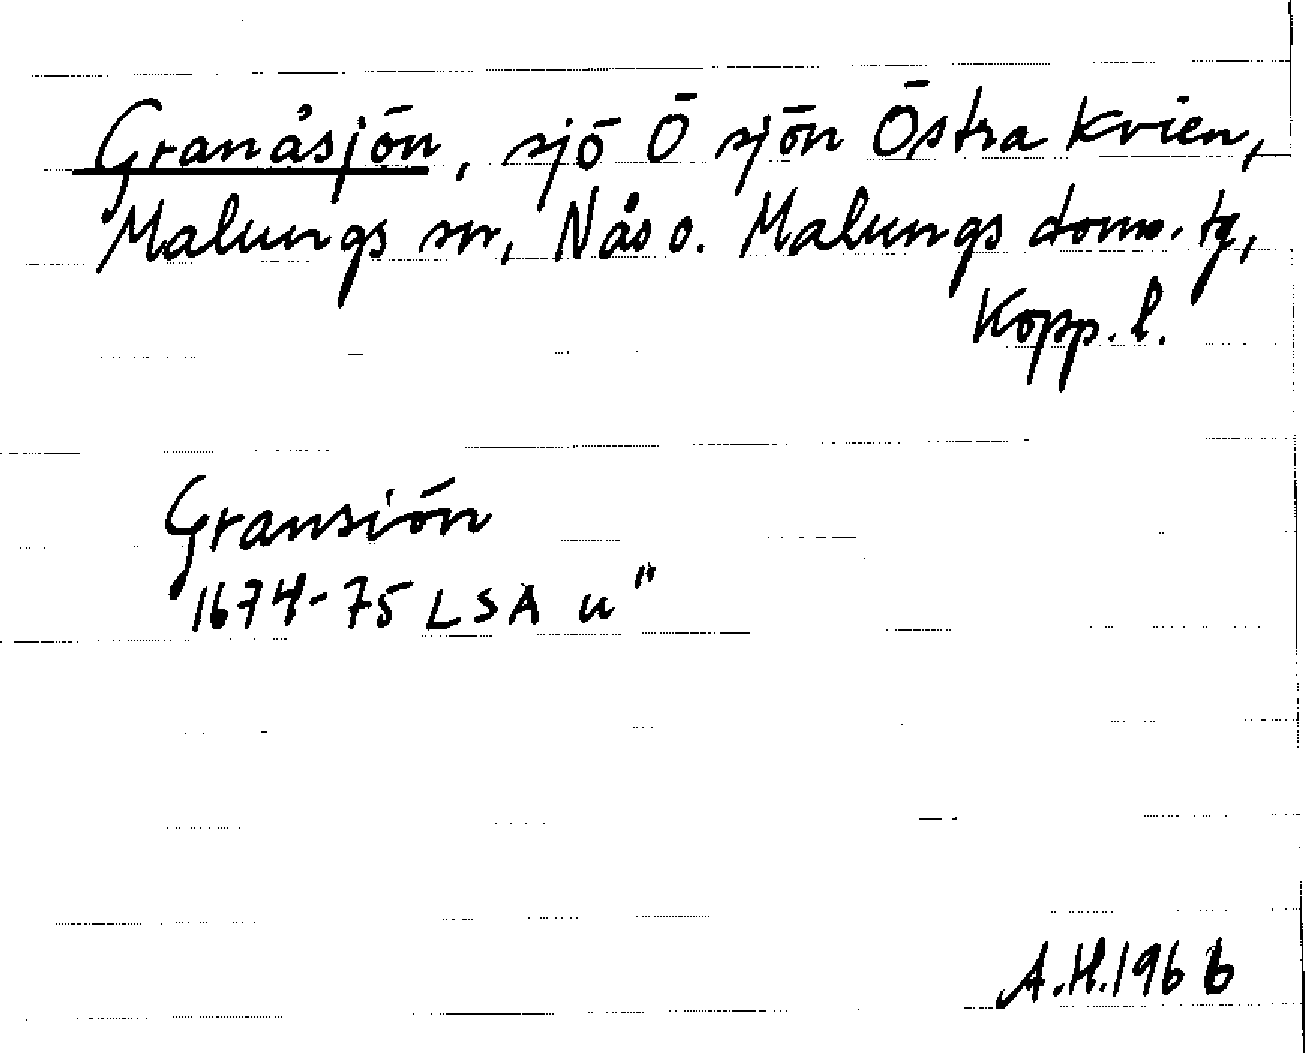 Granåsjön, sjö Ö sjön Östra Kvien,
Malungs sn, Nås o. Malungs doms. tg,
Kopp. l.
Gransiön
1674-75 LSA u"
A.H.1966